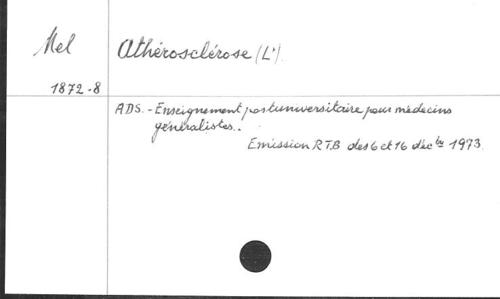 Mel
Athérosclérose (L').
1872-8
ADS. - Enseignement postuniversitaire pour médecins
généralistes..
Emission R.T.B des 6 et 16 déc bre 1973.